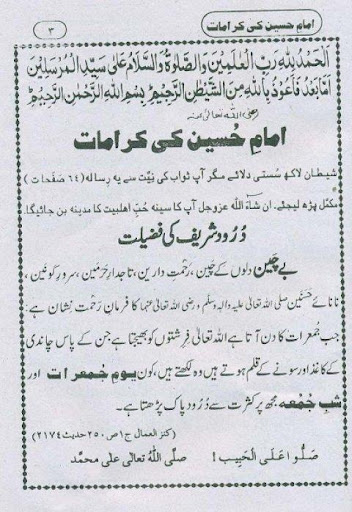 امامِ حسین کی کرامات
۳
اَلْحَمْدُ لِلّٰہِ رَبِّ الْعٰلَمِیْنَ وَالصَّلٰوۃُ وَالسَّلَامُ عَلٰی سَیِّدِ الْمُرْسَلِیْنَ
اَمَّا بَعْدُ فَاَعُوْذُ بِاللّٰہِ مِنَ الشَّیْطٰنِ الرَّجِیْمِ ؕ بِسْمِ اللّٰہِ الرَّحْمٰنِ الرَّحِیْمِ ؕ
رضی اللہ تعالیٰ عنہ
امامِ حُسین کی کرامات
شیطان لاکھ سُستی دلائے مگر آپ ثواب کی نِیَّت سے یہ رِسالہ (٦٤ صَفْحات)
مکمَّل پڑھ لیجئے۔ ان شاءَ اللہ عزوجل آپ کا سینہ حُبِّ اھلبیت کا مدینہ بن جائیگا۔
دُرُود شریف کی فضیلت
بے چَین دلوں کے چَین، رَحْمتِ دارین، تاجدارِ حَرَمَین، سرورِ کونین،
نانائے حَسَنَین صلی اللہ تعالیٰ علیہ والہٖ وسلم و رضی اللہ تعالیٰ عنہما کا فرمانِ رَحْمت نشان ہے:
جب جُمعرات کا دن آتا ہے اللہ تعالیٰ فِرِشتوں کو بھیجتا ہے جن کے پاس چاندی
کے کاغذ اور سونے کے قلم ہوتے ہیں وہ لکھتے ہیں، کون یومِ جُمعرات اور
شبِ جُمُعہ مجھ پر کثرت سے دُرُودِ پاک پڑھتا ہے۔
(کنز العمال ج ۱ ص ۲۵۰ حدیث ۲۱۷۴)
صَلُّوا عَلَی الْحَبِیب! صلَّی اللّٰہُ تعالٰی علٰی محمَّد